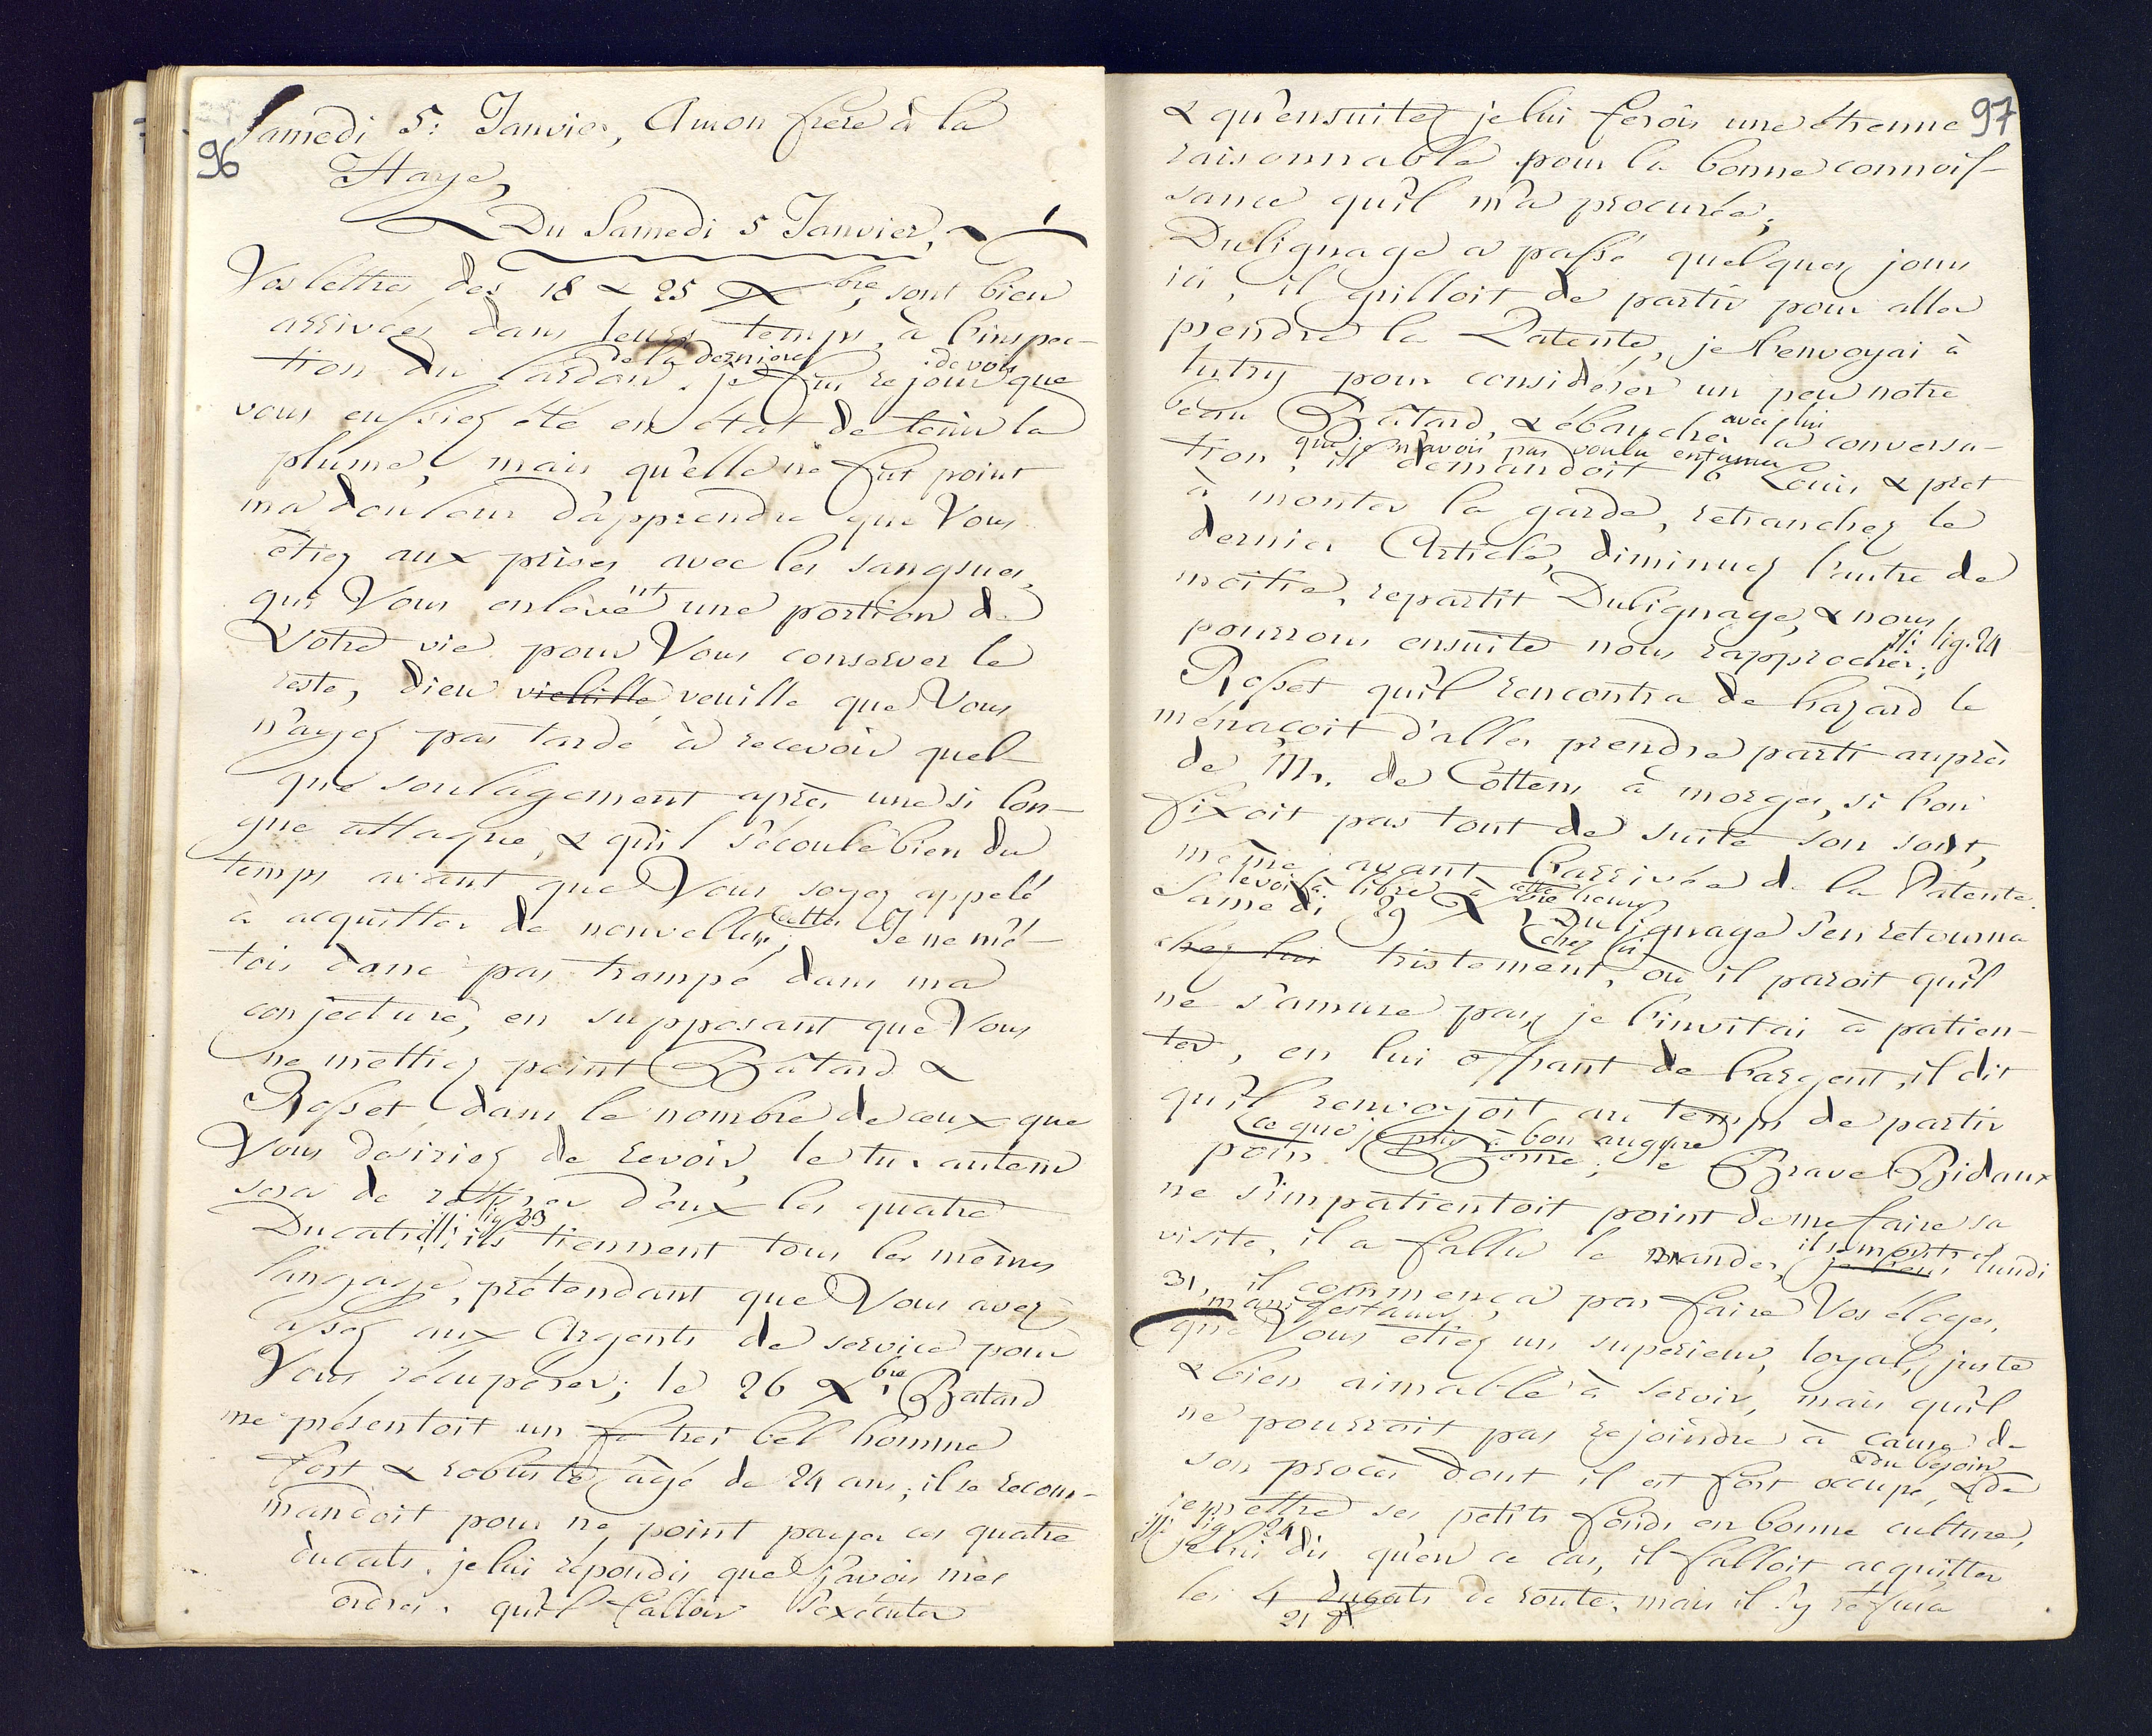 96
Samedi 5: Janvier, A mon frere à la
Haye,
Du Samedi 5 Janvier,
Vos lettres des 18 & 25 Xbre, sont bien
arrivées dans leurs temps, à l'inspec-
tion du lardon de la derniere je fus rejoui de voir que
vous eussiez été en état de tenir la
plume, mais qu'elle ne fut point
ma douleur d'apprendre que Vous
êtiez aux prises avec les sangsues,
qui Vous enlèvent une portion de
Votre vie pour Vous conserver le
reste, Dieu vielille veuille que Vous
n'ayez pas tardé à recevoir quel-
que soulagement après une si lon-
gue attaque, & qu'il s'écoule bien du
temps avant que Vous soyez appelé
à acquitter de nouvelles dettes; Je ne m'é-
tois donc pas trompé dans ma
conjecture, en supposant que Vous
ne mettiez point Bâtard &
Rosset dans le nombre de ceux que
Vous desiriez de revoir, le tu autem
sera de rattirer d'eux les quatre
Ducats lig 23 ils tiennent tous les mèmes
langage, prétendant que Vous avez
assez aux Argents de service pour
Vous récuperer; le 26 Xbre Batard
me présentoit un fo trés bel homme
fort & robuste âgé de 24 ans; il se recom-
mandoit pour ne point payer ces quatre
ducats. je lui répondis que j'avois mes
ordres. qu'il falloit s'exécuter
97
& qu'ensuite je lui ferois une étrenne
raisonnable pour la bonne connois-
sance qu'il m'a procurée;
Dulignage a passé quelques jours
ici, il grilloit de partir pour aller
prendre la Patente, je l'envoyai à
lutry pour considérer un peu notre
beau Bâtard, & ébaucher avec lui la conversa-
tion, que je n'avois pas voulu entamer il demandoit 16 Louis & pret
à monter la garde, retranchez le
dernier Article, diminuez l'autre de
moitié, repartit Dulignage, & nous
pourrons ensuite nous rapprocher; lig. 24
Rosset qu'il rencontra de hazard le
ménaçoit d'aller prendre parti auprès
de Mr. de Cottens à morges, si l'on
fixoit pas tout de suite son sort,
même avant l'arrivée de la Patente.
levoilà libre à cette heure
Samedi 29 X Dulignage s'en retourna
chez lui tristement, chez lui où il paroit qu'il
ne s'amuse pas, je l'invitai à patien-
ter, en lui offrant de l'argent, il dit
qu'il renvoyoit au temps de partir
ce que je pris à bon augure
pour Rome; le Brave Bidaux
ne s'impatientoit point de me faire sa
visite, il a fallu le mander, il se montra je l'eus lundi
31, il commença par faire Vos éloges,
manifestant,
que Vous etiez un superieur, loyal, juste
& bien aimable à servir, mais qu'il
ne pourroit pas rejoindre à cause de
son procès dont il est fort occupé, & du besoin & de
remettre ses petits fonds en bonne culture,
lig 24
je lui dis qu'en ce cas, il falloit acquitter
les 4 ducats de route, mais il s'y refusa
21